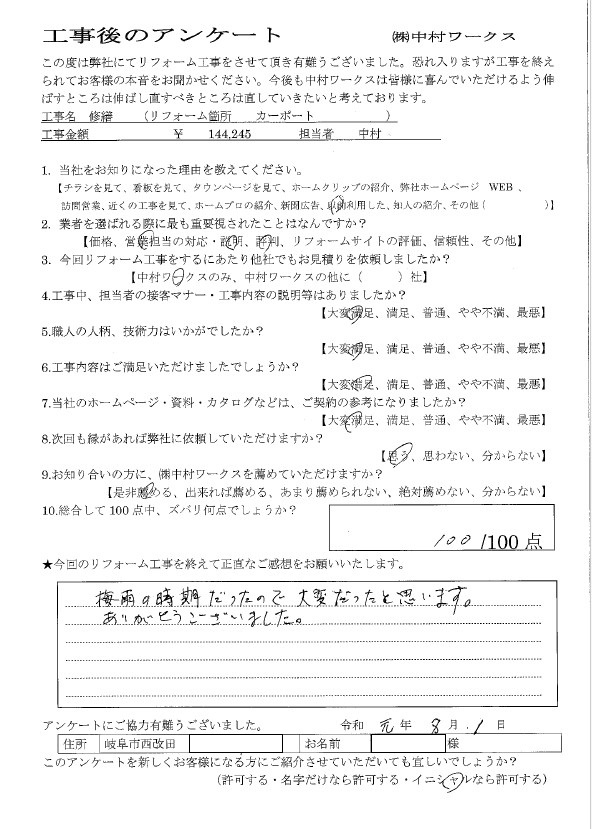 工事後のアンケート　㈱中村ワークス
この度は弊社にてリフォーム工事をさせて頂き有難うございました。恐れ入りますが工事を終え
られてお客様の本音をお聞かせください。今後も中村ワークスは皆様に喜んでいただけるよう伸
ばすところは伸ばし直すべきところは直していきたいと考えております。
工事名　修繕　（リフォーム箇所　カーポート　）
工事金額　￥　144,245　担当者　中村
1. 当社をお知りになった理由を教えてください。
【チラシを見て、看板を見て、タウンページを見て、ホームクリップの紹介、弊社ホームページ　WEB、
訪問営業、近くの工事を見て、ホームプロの紹介、新聞広告、以前利用した、知人の紹介、その他（　）】
2. 業者を選ばれる際に最も重要視されたことはなんですか？
【価格、営業担当の対応・説明、評判、リフォームサイトの評価、信頼性、その他】
3. 今回リフォーム工事をするにあたり他社でもお見積りを依頼しましたか？
【中村ワークスのみ、中村ワークスの他に（　）社】
4.工事中、担当者の接客マナー・工事内容の説明等はありましたか？
【大変満足、満足、普通、やや不満、最悪】
5.職人の人柄、技術力はいかがでしたか？
【大変満足、満足、普通、やや不満、最悪】
6.工事内容はご満足いただけましたでしょうか？
【大変満足、満足、普通、やや不満、最悪】
7.当社のホームページ・資料・カタログなどは、ご契約の参考になりましたか？
【大変満足、満足、普通、やや不満、最悪】
8.次回も縁があれば弊社に依頼していただけますか？
【思う、思わない、分からない】
9.お知り合いの方に、㈱中村ワークスを薦めていただけますか？
【是非薦める、出来れば薦める、あまり薦められない、絶対薦めない、分からない】
10.総合して 100 点中、ズバリ何点でしょうか？
100 /100 点
★今回のリフォーム工事を終えて正直なご感想をお願いいたします。
梅雨の時期だったので大変だったと思います。
ありがとうございました。
アンケートにご協力有難うございました。　令和　元　年　8　月　1　日
住所　岐阜市西改田　お名前　様
このアンケートを新しくお客様になる方にご紹介させていただいても宜しいでしょうか？
（許可する・名字だけなら許可する・イニシャルなら許可する）